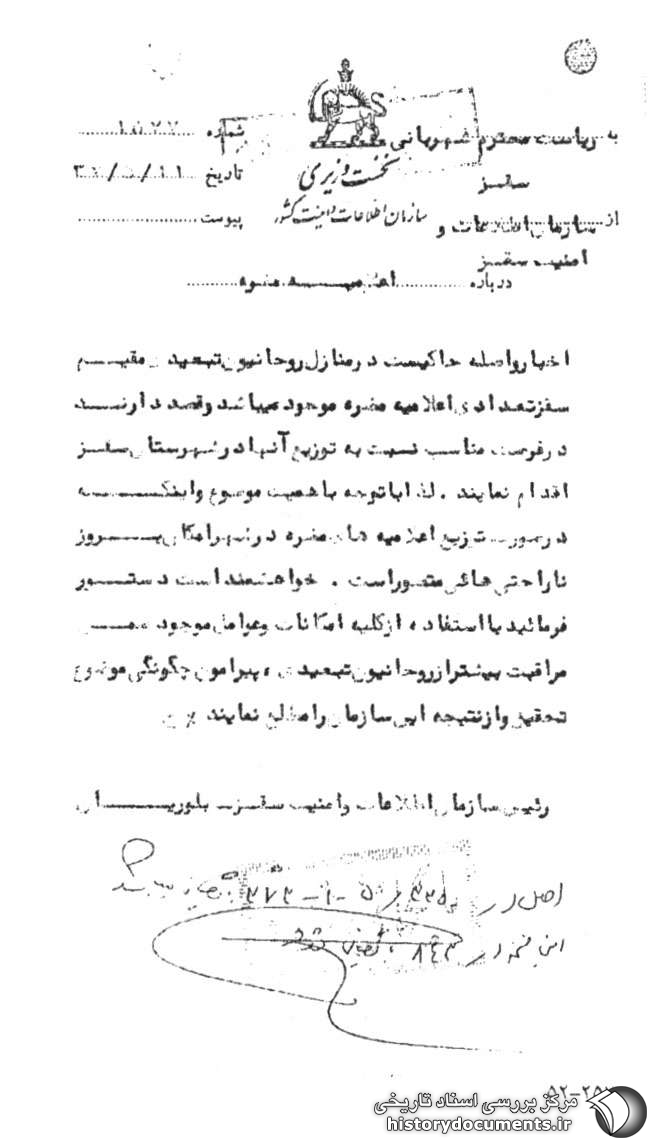 به ریاست محترم شهربانی
سقز
از سازمان اطلاعات و
امنیت سقز
نخست وزیری
سازمان اطلاعات و امنیت کشور
شماره
تاریخ
پیوست
درباره اعلامیه مضره
اخبار واصله حاکیست در منازل روحانیون تبعیدی مقیم
سقز تعدادی اعلامیه مضره موجود میباشد و قصد دارند
در فرصت مناسب نسبت به توزیع آنها در شهرستان سقز
اقدام نمایند . لذا با توجه باهمیت موضوع و اینکه
در صورت توزیع اعلامیه های مضره در شهر امکان بروز
ناراحتی هائی متصور است . خواهشمند است دستور
فرمائید با استفاده از کلیه امکانات و عوامل موجود ضمن
مراقبت بیشتر از روحانیون تبعیدی ، پیرامون چگونگی موضوع
تحقیق و از نتیجه این سازمان را مطلع نمایند
رئیس سازمان اطلاعات و امنیت سقز . بلوریان
اصل در
این نسخه در ۸۴۳ شود
مرکز بررسی اسناد تاریخی
historydocuments.ir